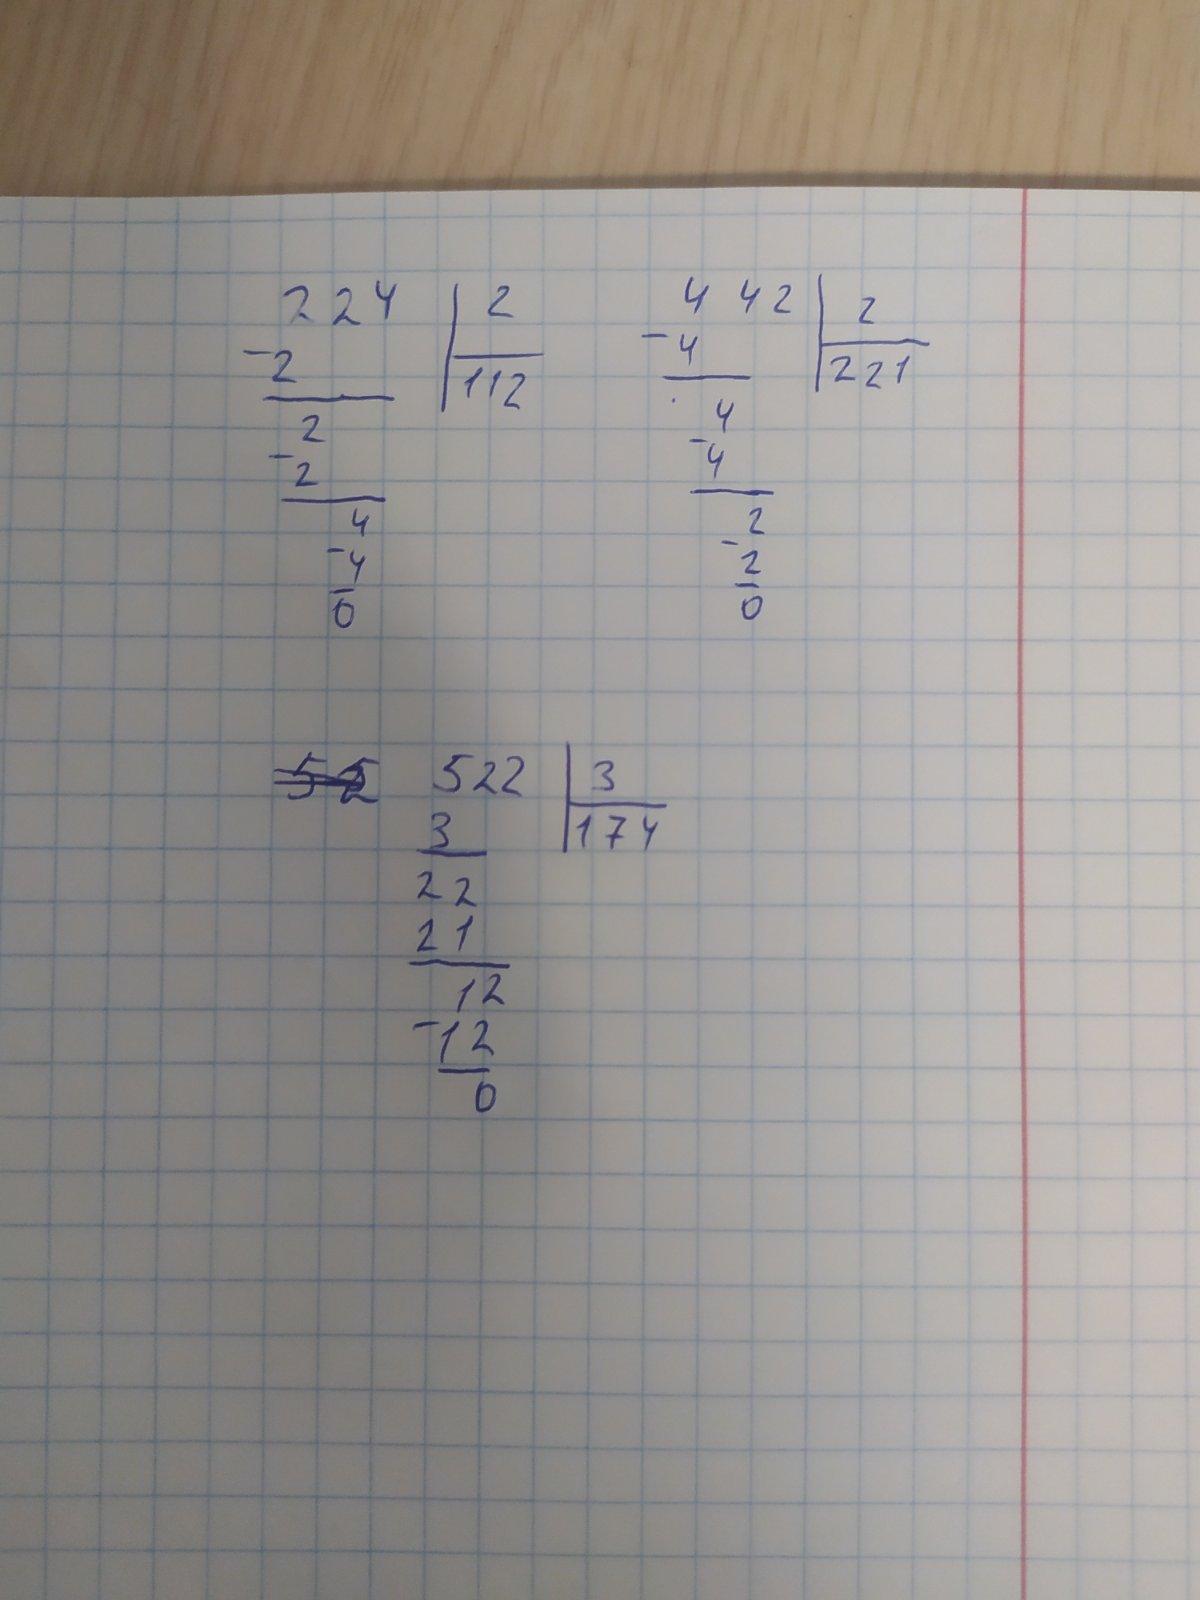 224 2
-2 112
2
-2
4
-4
0
442 2
-4 221
4
-4
2
-2
0
522 3
3 174
22
21
12
-12
0